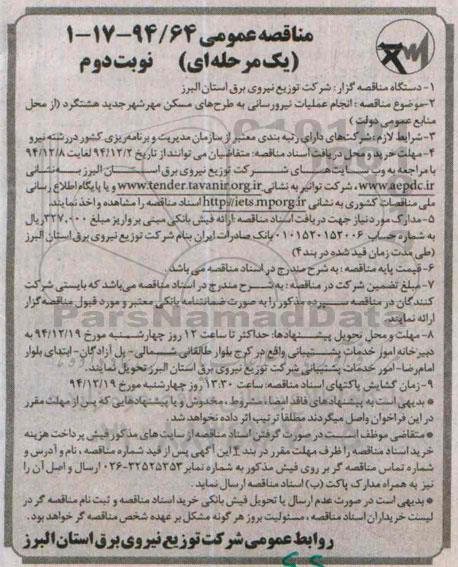 مناقصه عمومی ۹۴/۶۴-۱۷-۱
(یک مرحله‌ای) نوبت دوم
۱-دستگاه مناقصه گزار: شرکت توزیع نیروی برق استان البرز
۲-موضوع مناقصه: انجام عملیات نیرورسانی به طرح‌های مسکن مهرشهر جدید هشتگرد (از محل
منابع عمومی دولت)
۳-شرایط لازم: شرکت‌های دارای رتبه بندی معتبر از سازمان مدیریت و برنامه‌ریزی کشور دررشته نیرو
۴-مهلت خرید و محل دریافت اسناد مناقصه: متقاضیان می توانند از تاریخ ۹۴/۱۲/۲ لغایت ۹۴/۱۲/۸
با مراجعه به وب سایت‌های شرکت توزیع نیروی برق استان البرز به‌نشانی
www.aepdc.ir، شرکت توانیر به نشانی www.tender.tavanir.org.ir و یا پایگاه اطلاع رسانی
ملی مناقصات کشوری به نشانی http://iets.mporg.ir اسناد مناقصه را مشاهده و اخذ نمایند.
۵-مدارک مورد نیاز جهت دریافت اسناد مناقصه ارائه فیش بانکی مبنی بر واریز مبلغ ۳۲۷،۰۰۰ ریال
به شماره حساب ۰۱۰۱۵۲۰۱۵۲۰۰۶ بانک صادرات ایران بنام شرکت توزیع نیروی برق استان البرز
(طی مدت زمان قید شده در بند ۴)
۶-قیمت پایه مناقصه: به شرح مندرج در اسناد مناقصه می باشد.
۷-مبلغ تضمین شرکت در مناقصه: به شرح مندرج در اسناد مناقصه می‌باشد که بایستی شرکت
کنندگان در مناقصه سپرده مذکور را به صورت ضمانتنامه بانکی معتبر و مورد قبول مناقصه گزار
ارائه نمایند.
۸-مهلت و محل تحویل پیشنهادها: حداکثر تا ساعت ۱۲ روز چهارشنبه مورخ ۹۴/۱۲/۱۹ به
دبیرخانه امور خدمات پشتیبانی واقع در کرج بلوار طالقانی شمالی-پل آزادگان-ابتدای بلوار
امام رضا-امور خدمات پشتیبانی شرکت توزیع نیروی برق استان البرز تحویل نمایند.
۹-زمان گشایش پاکتهای اسناد مناقصه: ساعت ۱۳:۳۰ روز چهارشنبه مورخ ۹۴/۱۲/۱۹
* بدیهی است به پیشنهادهای فاقد امضا، مشروط، مخدوش و یا پیشنهادهایی که پس از مهلت مقرر
در این فراخوان واصل میگردند مطلقا ترتیب اثر داده نخواهد شد.
* متقاضی موظف است در صورت گرفتن اسناد مناقصه از سایت های مذکور فیش پرداخت هزینه
خرید اسناد مناقصه را ظرف مهلت مقرر در بند ۴ این آگهی پس از قید شماره مناقصه، نام و آدرس و
شماره تماس مناقصه گر بر روی فیش مذکور به شماره نمابر ۳۲۵۲۵۲۵۳-۰۲۶ ارسال و اصل آن را
نیز به همراه مدارک پاکت (ب) اسناد مناقصه ارسال نماید.
* بدیهی است در صورت عدم ارسال یا تحویل فیش بانکی خرید اسناد مناقصه و ثبت نام مناقصه گر در
لیست خریداران اسناد مناقصه، مسئولیت بروز هر گونه مشکل بر عهده شخص مناقصه گر خواهد بود.
روابط عمومی شرکت توزیع نیروی برق استان البرز
ParsNamadData